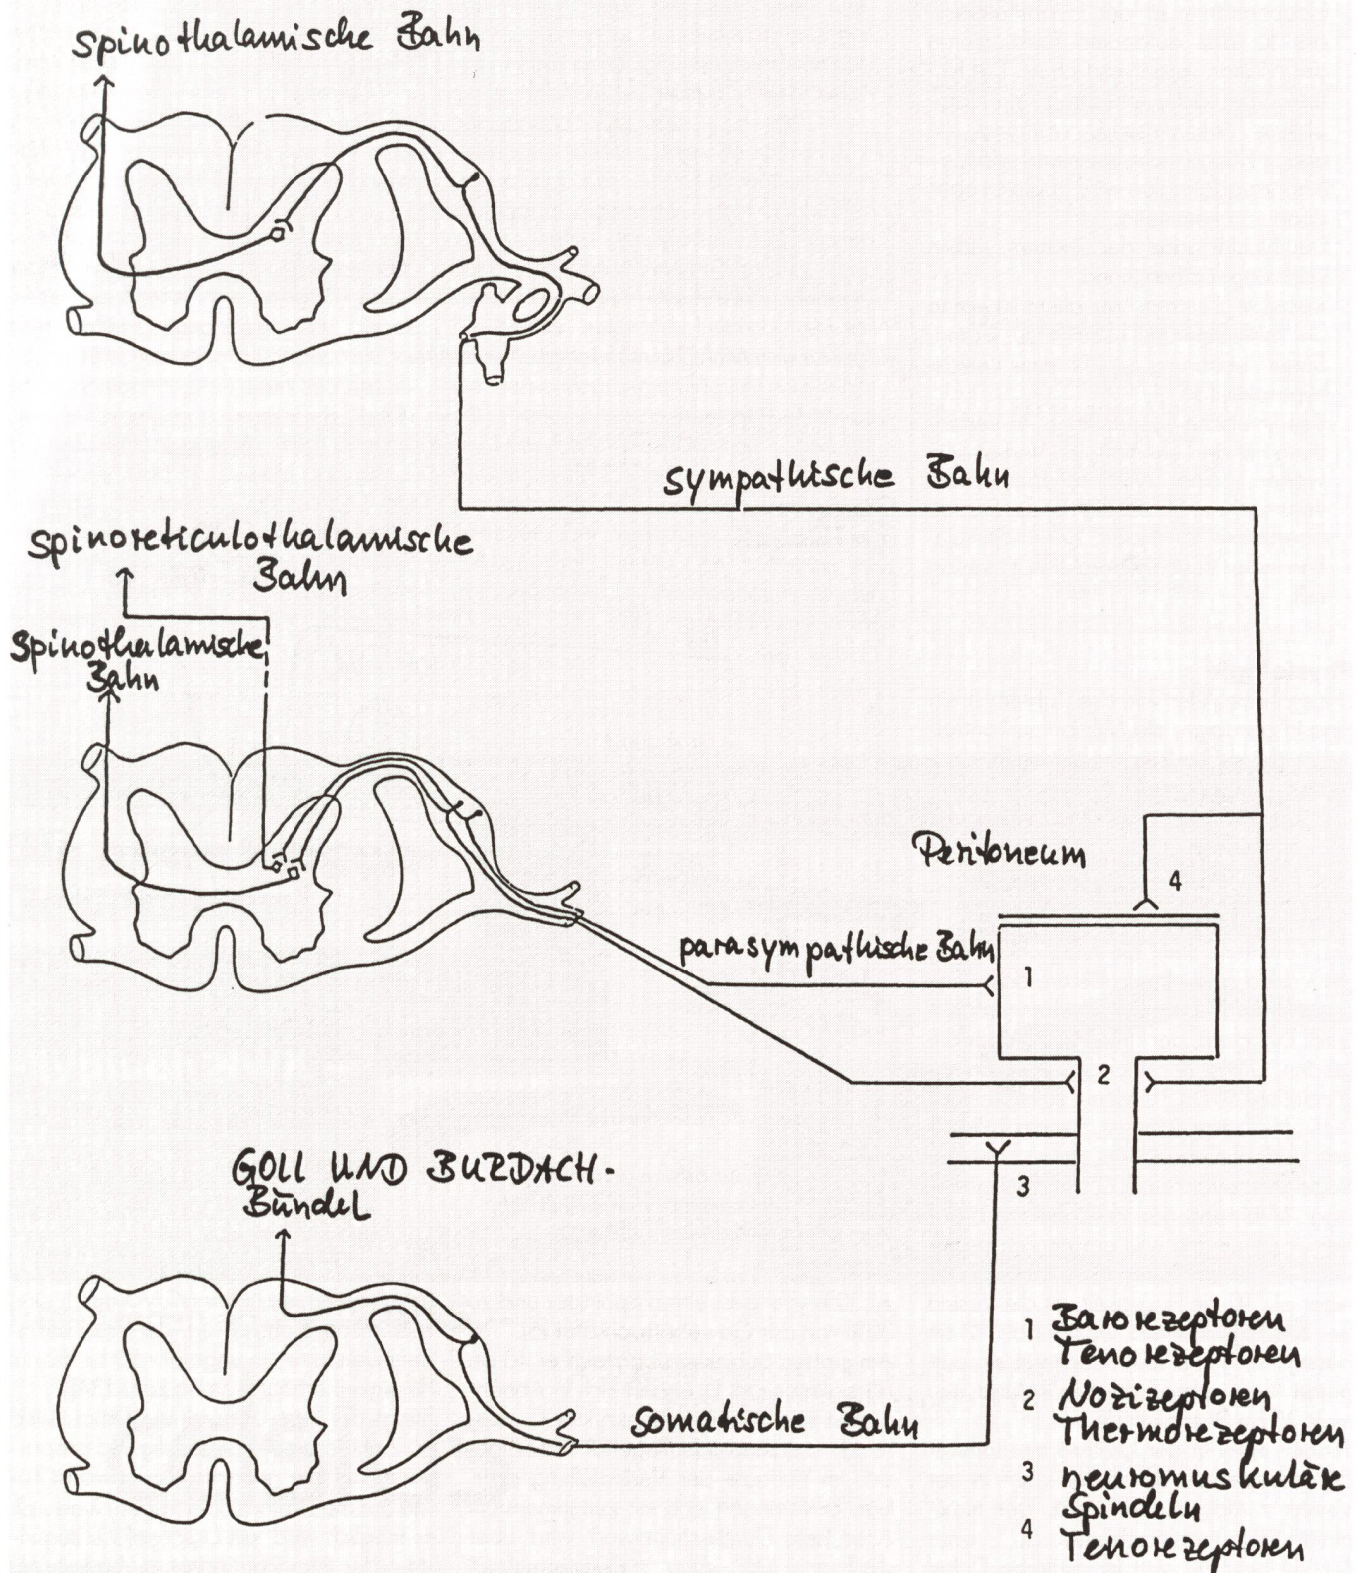 spinothalamische Bahn
sympathische Bahn
spinoreticulothalamische
Bahn
spinothalamische
Bahn
Peritoneum
4
parasympathische Bahn
1
2
3
GOLL UND BURDACH-
Bündel
somatische Bahn
1 Barorezeptoren
Tenorezeptoren
2 Nozizeptoren
Thermorezeptoren
3 neuromuskuläre
Spindeln
4 Tenorezeptoren